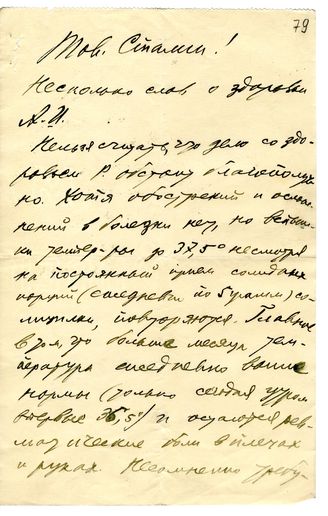 79
Тов. Сталин!
Несколько слов о здоровьи
А.И.
Нельзя считать, что дело со здо-
ровьем Р. обстоит благополуч-
но. Хотя обострений и ослож-
нений в болезни нет, но вспыш-
ки темпер-ры до 37,5° несмотря
на постоянный прием солидных
порций (ежедневно по 5 грамм) са-
лицилки, повторяются. Главное
в том, что больше месяца тем-
пература ежедневно выше
нормы (только сегодня утром
впервые 36,5°) и остаются рев-
матические боли в плечах
и руках. Несомненно требу-